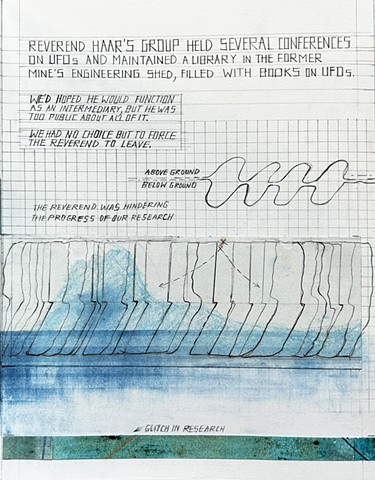 REVEREND HAAR'S GROUP HELD SEVERAL CONFERENCES
ON UFOs AND MAINTAINED A LIBRARY IN THE FORMER
MINE'S ENGINEERING SHED, FILLED WITH BOOKS ON UFOs.
WE'D HOPED HE WOULD FUNCTION
AS AN INTERMEDIARY, BUT HE WAS
TOO PUBLIC ABOUT ALL OF IT.
WE HAD NO CHOICE BUT TO FORCE
THE REVEREND TO LEAVE.
ABOVE GROUND
BELOW GROUND
THE REVEREND WAS HINDERING
THE PROGRESS OF OUR RESEARCH
GLITCH IN RESEARCH